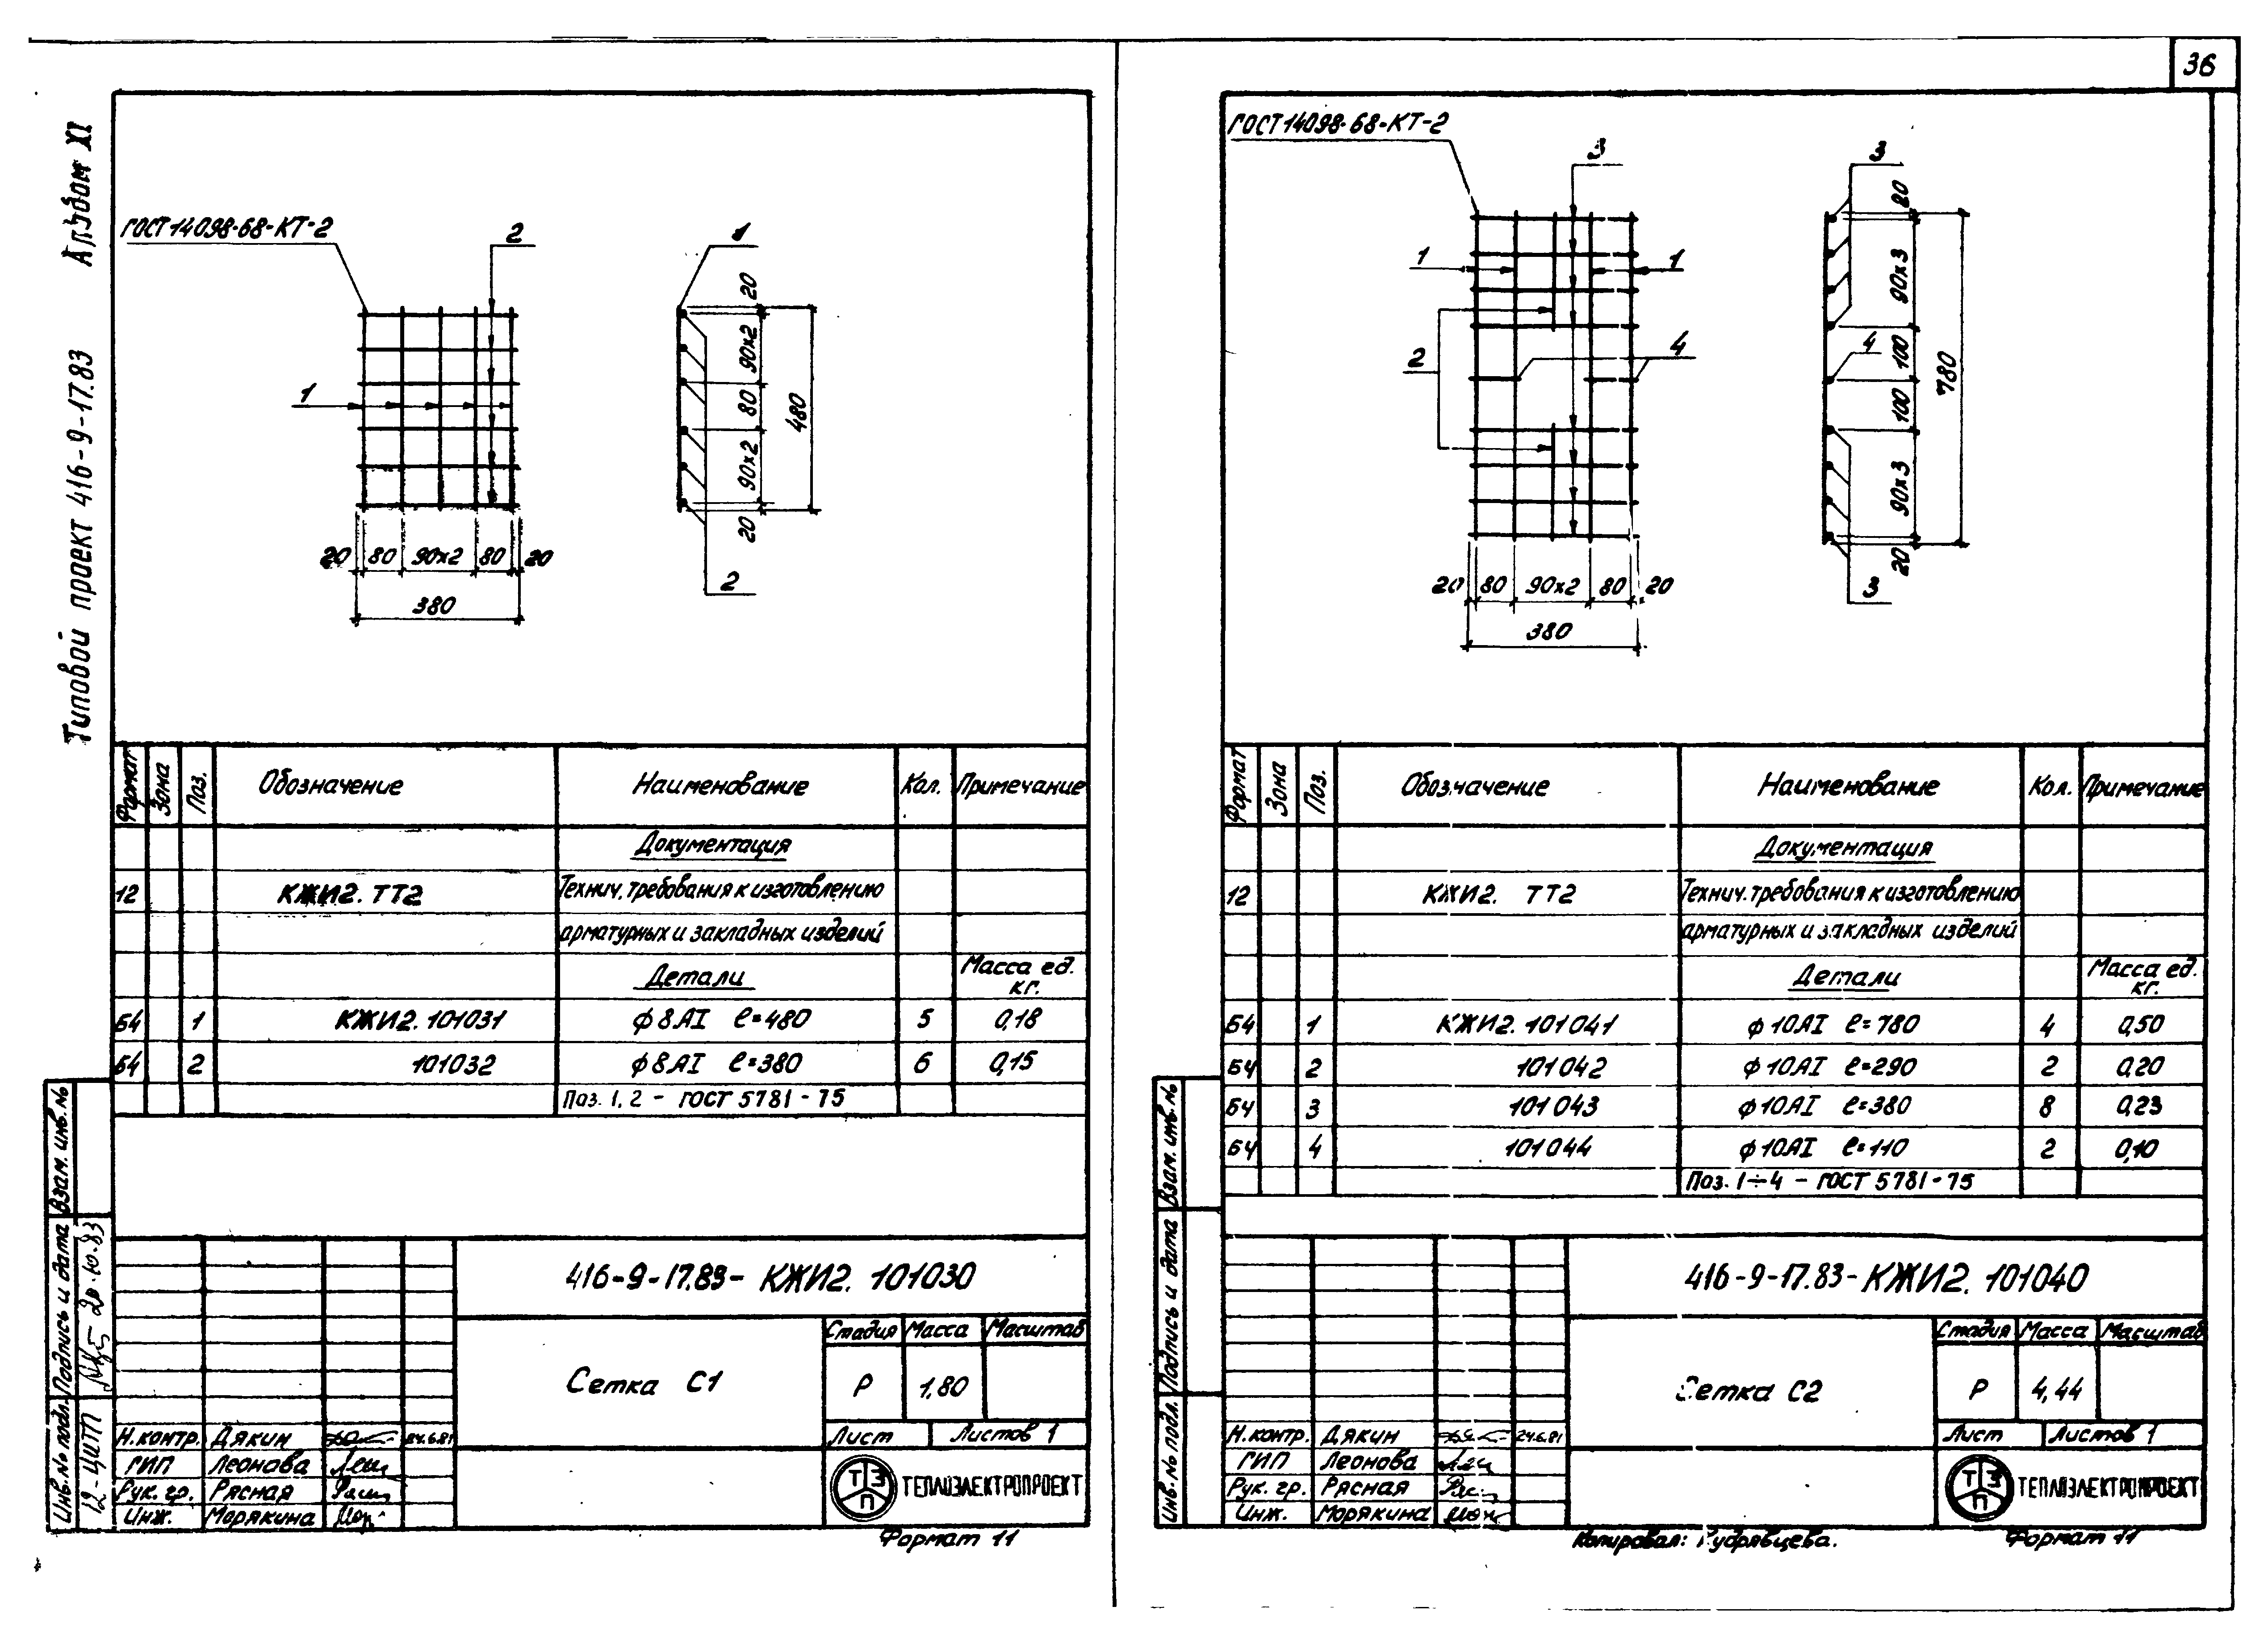 36
Типовой проект 416-9-17.83 Альбом XI
ГОСТ 14098-68-КТ-2
2
1
20 80 90х2 80 20
380
1
20
90х2
80
90х2
20
480
2
Формат Зона Поз. Обозначение Наименование Кол. Примечание
Документация
12 КЖИ2. ТТ2 Технич. требования к изготовлению
арматурных и закладных изделий
Детали Масса ед. кг.
Б4 1 КЖИ2. 101031 ф8АI ℓ=480 5 0,18
Б4 2 101032 ф8АI ℓ=380 6 0,15
Поз. 1, 2 - ГОСТ 5781-75
416-9-17.83- КЖИ2. 101030
Сетка С1
Стадия Масса Масштаб
Р 1,80
Лист Листов 1
Н.контр. Дякин 24.6.81
ГИП Леонова
Рук. гр. Рясная
Инж. Морякина
ТЭП ТЕПЛОЭЛЕКТРОПРОЕКТ
Формат 11
Взам. инв. №
Подпись и дата 20.10.83
Инв. № подл. 12-ЦИТП
ГОСТ 14098-68-КТ-2
3
1 1
2 4
20 80 90х2 80 20
380
3
20
90х3
100
4
100
90х3
20
780
3
Формат Зона Поз. Обозначение Наименование Кол. Примечание
Документация
12 КЖИ2. ТТ2 Технич. требования к изготовлению
арматурных и закладных изделий
Детали Масса ед. кг.
Б4 1 КЖИ2. 101041 ф10АI ℓ=780 4 0,50
Б4 2 101042 ф10АI ℓ=290 2 0,20
Б4 3 101043 ф10АI ℓ=380 8 0,23
Б4 4 101044 ф10АI ℓ=110 2 0,10
Поз. 1÷4 - ГОСТ 5781-75
416-9-17.83-КЖИ2. 101040
Сетка С2
Стадия Масса Масштаб
Р 4,44
Лист Листов 1
Н.контр. Дякин 24.6.81
ГИП Леонова
Рук. гр. Рясная
Инж. Морякина
ТЭП ТЕПЛОЭЛЕКТРОПРОЕКТ
Копировал: Кудрявцева. Формат 11
Взам. инв. №
Подпись и дата
Инв. № подл.